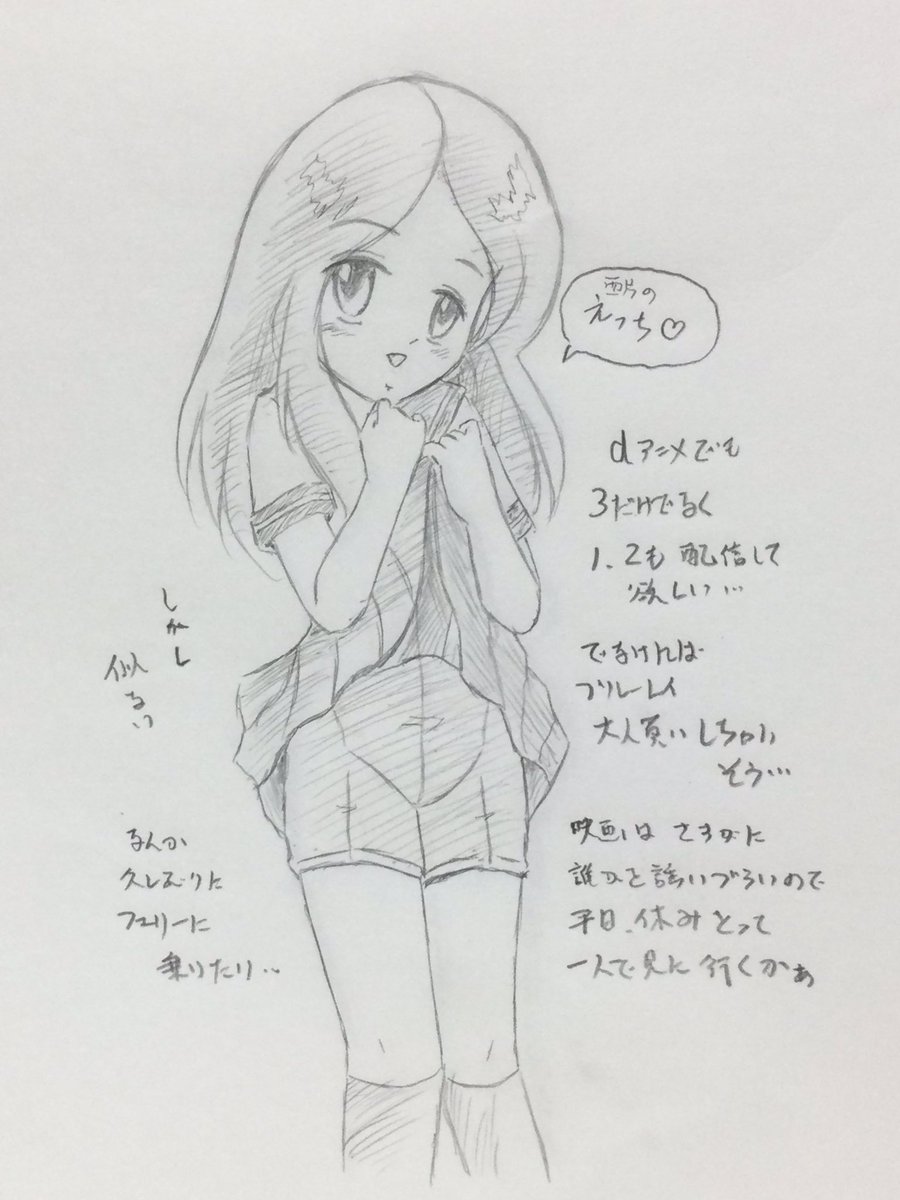 西片の
えっち♡
dアニメでも
3だけでなく
1、2も配信して
欲しい…
でなければ
ブルーレイ
大人買いしちゃい
そう…
映画はさすがに
誰かを誘いづらいので
平日、休みとって
一人で見に行くかぁ
しかし
似ない
なんか
久しぶりに
フェリーに
乗りたい…